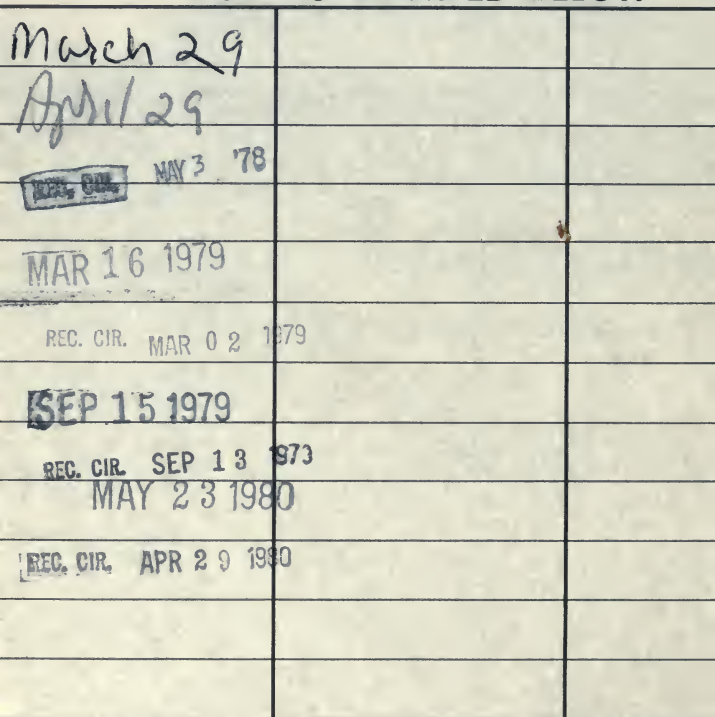 March 29
April 29
REC. CIR. MAY 3 '78
MAR 16 1979
REC. CIR. MAR 02 1979
SEP 15 1979
REC. CIR. SEP 13 1973
MAY 23 1980
REC. CIR. APR 29 1980